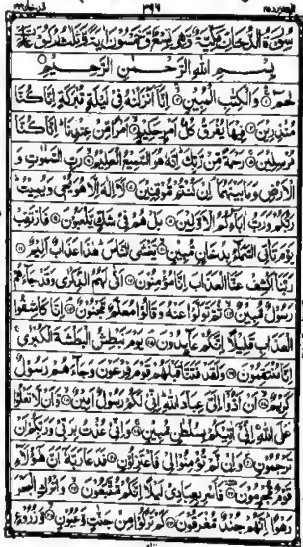 سورة الدخان مكية وهي تسع وخمسون آية وثلث ركوع
بسم الله الرحمن الرحيم
حم والكتب المبين انا انزلنه في ليلة مبركة انا كنا
منذرين فيها يفرق كل امر حكيم امرا من عندنا انا كنا
مرسلين رحمة من ربك انه هو السميع العليم رب السموت و
الارض وما بينهما ان كنتم موقنين لا اله الا هو يحي ويميت
ربكم ورب ابائكم الاولين بل هم في شك يلعبون فارتقب
يوم تاتي السماء بدخان مبين يغشى الناس هذا عذاب اليم
ربنا اكشف عنا العذاب انا مؤمنون انى لهم الذكرى وقد جاءهم
رسول مبين ثم تولوا عنه وقالوا معلم مجنون انا كاشفوا
العذاب قليلا انكم عائدون يوم نبطش البطشة الكبرى
انا منتقمون ولقد فتنا قبلهم قوم فرعون وجاءهم رسول
كريم ان ادوا الي عباد الله اني لكم رسول امين وان لا تعلوا
على الله اني اتيكم بسلطن مبين واني عذت بربي وربكم ان
ترجمون وان لم تؤمنوا لي فاعتزلون فدعا ربه ان هؤلاء
قوم مجرمون فاسر بعبادي ليلا انكم متبعون واترك البحر
رهوا انهم جند مغرقون كم تركوا من جنت وعيون وزروع